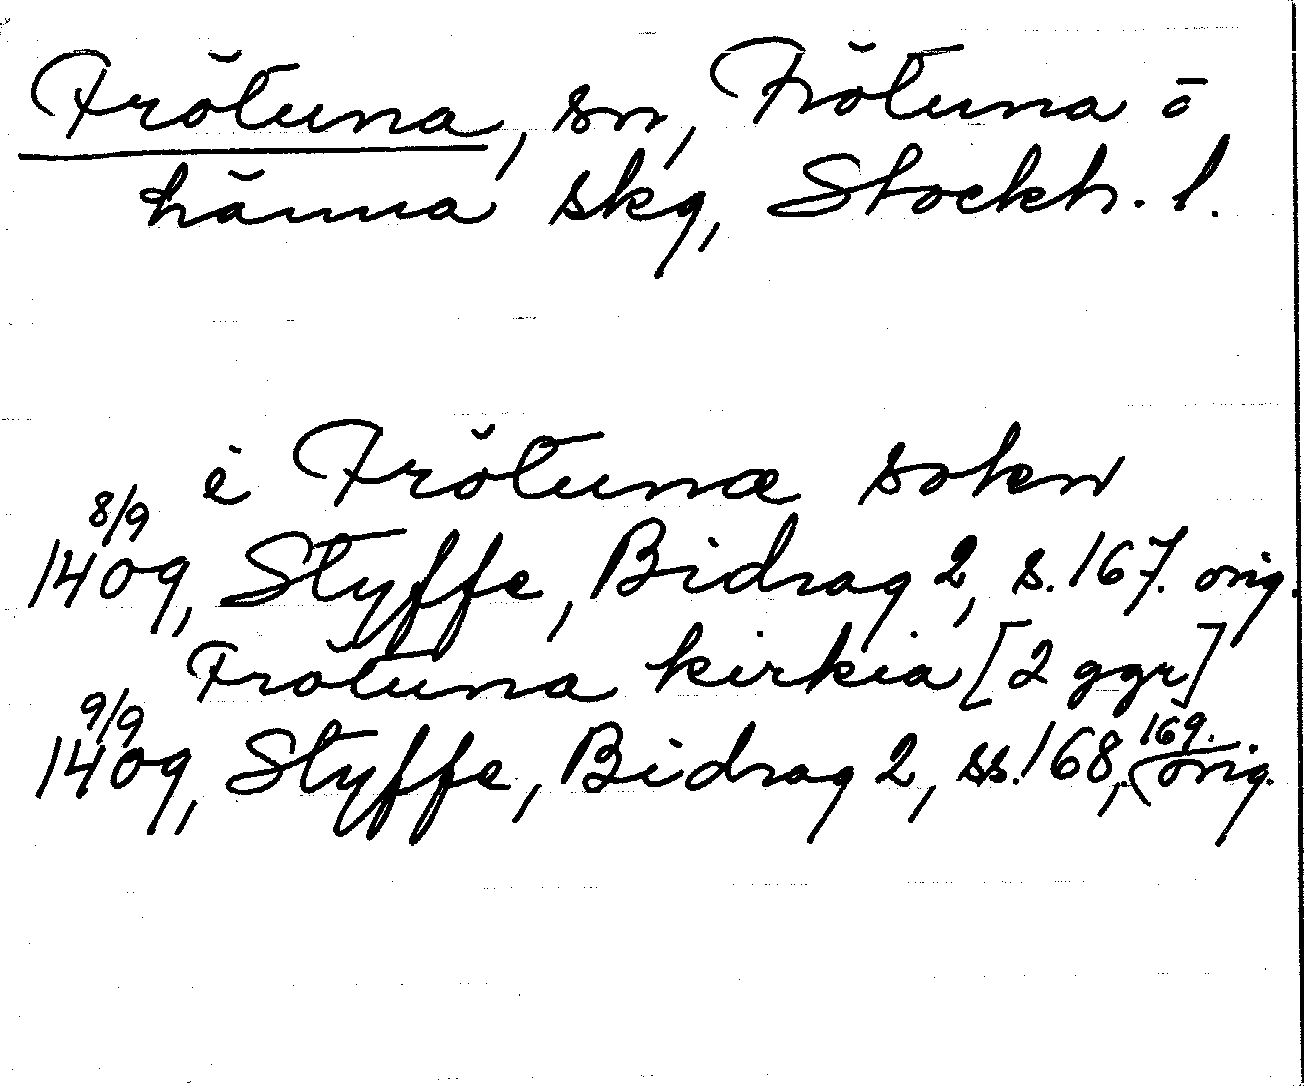 Frötuna, sn, Frötuna o
länna skg, Stockh. l.
i Frötunæ sokn
8/9 1409, Styffe, Bidrag 2, s. 167. orig.
Frötuna kirkia [2 ggr]
9/9 1409, Styffe, Bidrag 2, ss. 168, 169. orig.